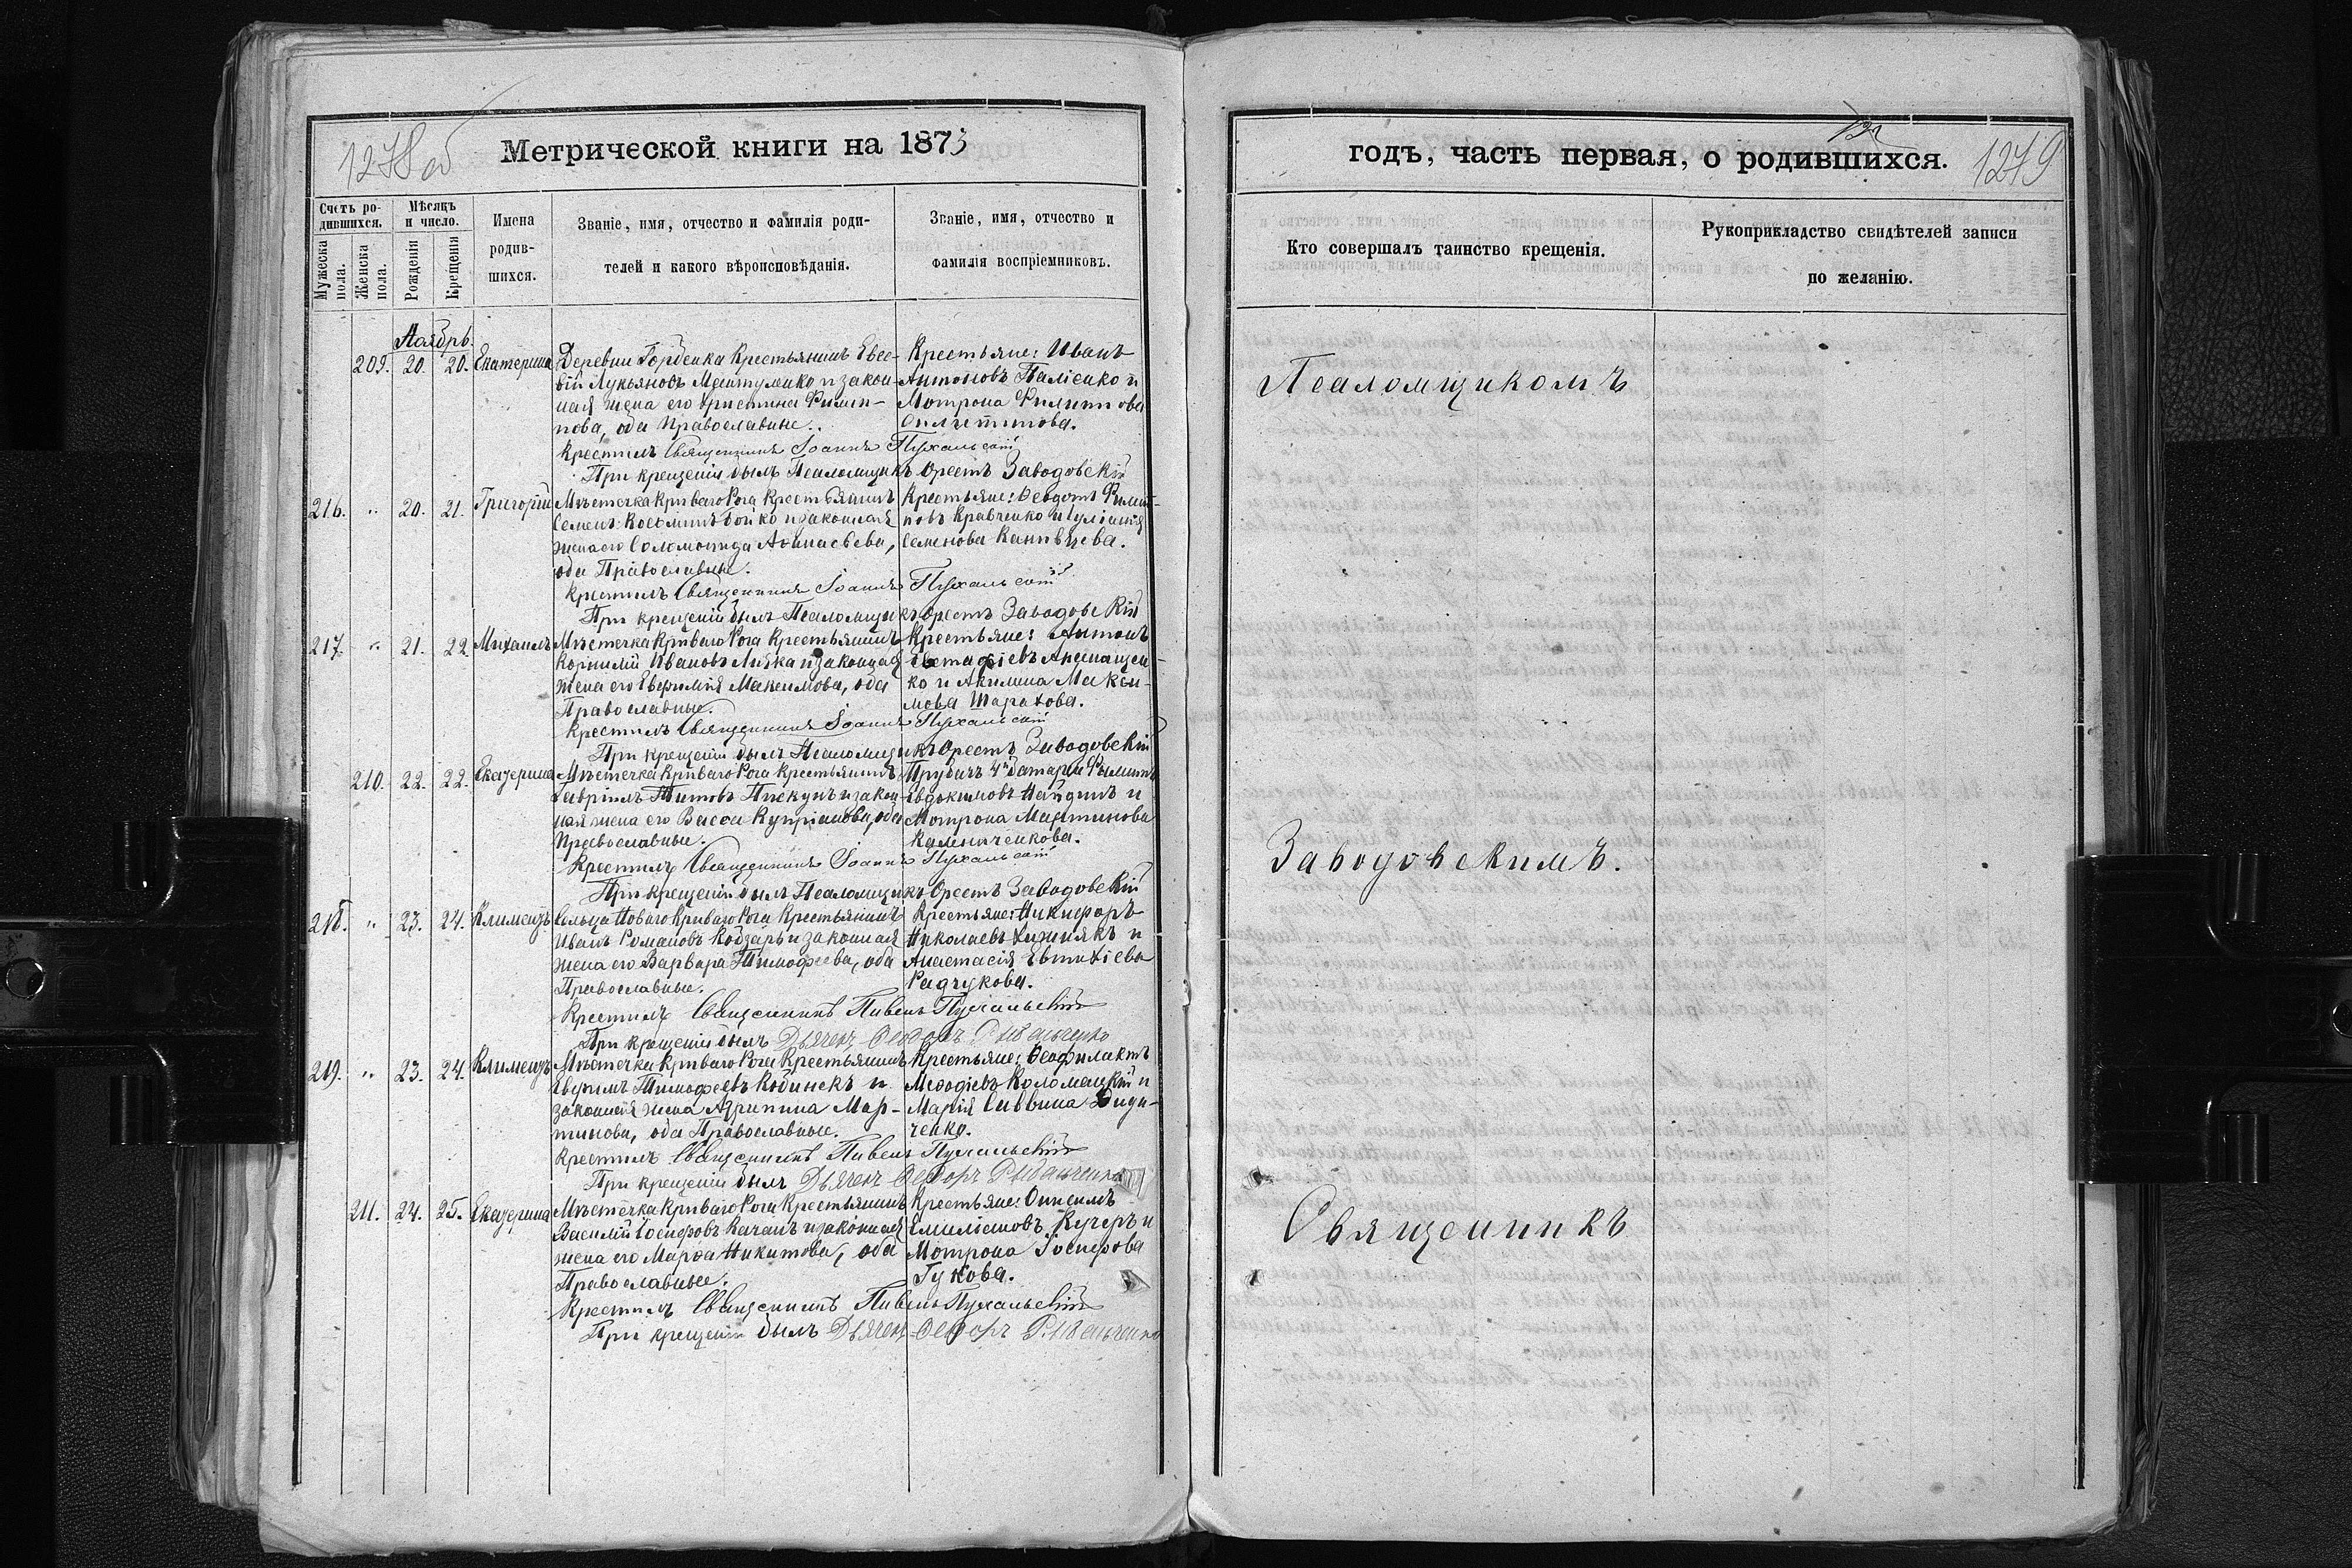 1278 об
Метрической книги на 1873
Счетъ ро-
дившихся.
Мѣсяцъ
и число.
Имена
родив-
шихся.
Званіе, имя, отчество и фамилія роди-
телей и какого вѣроисповѣданія.
Званіе, имя, отчество и
фамилія воспріемниковъ.
Мужеска
пола.
Женска
пола.
Рожденія
Крещенія
Ноябрь.
209. 20. 20. Екатерина Деревни Крестьянинъ Евсе- Крестьяне: Иванъ
вій Лукьяновъ и закон- Антоновъ Паліенко и
ная жена его Христина Филип- Мотрона Филиппова
пова, оба Православные.
Крестилъ Священникъ Іоаннъ Пухальскій
При крещеніи былъ Псаломщикъ Орестъ Заводовскій
216. " 20. 21. Григорій Мѣстечка Кривого Рога Крестьянинъ Крестьяне: Ѳеодотъ Филип-
Семенъ Бойко и законная повъ Кравченко и Іуліанія
жена его Соломонида Аѳанасьева, Семенова
оба Православные.
Крестилъ Священникъ Іоаннъ Пухальскій
При крещеніи былъ Псаломщикъ Орестъ Заводовскій
217. " 21. 22 Михаилъ Мѣстечка Кривого Рога Крестьянинъ Крестьяне: Антонъ
Корнилій Ивановъ и законная Евстафіевъ
жена его Евфимія Максимова, оба ко и Акилина Макси-
Православные. мова Шарахова.
Крестилъ Священникъ Іоаннъ Пухальскій
При крещеніи былъ Псаломщикъ Орестъ Заводовскій
210. 22. 22. Екатерина Мѣстечка Кривого Рога Крестьянинъ 4й батареи Филиппъ
Гавріилъ Титовъ Пискунъ и закон- Евдокимовъ и
ная жена его Васса Купріанова, оба Мотрона Мартинова
Православные. Калениченкова.
Крестилъ Священникъ Іоаннъ Пухальскій
При крещеніи былъ Псаломщикъ Орестъ Заводовскій
218. " 23. 24. Климентъ Сельца Новаго Кривого Рога Крестьянинъ Крестьяне: Никифоръ
Иванъ Романовъ Кобзарь и законная Николаевъ Хижнякъ и
жена его Варвара Тимофеева, оба Анастасія Евтихіева
Православные. Радчукова.
Крестилъ Священникъ Павелъ Пухальскій
При крещеніи былъ Дьяченъ Ѳеодоръ
219. " 23. 24. Климентъ Мѣстечка Кривого Рога Крестьянинъ Крестьяне: Ѳеофилактъ
Тимофеевъ и Меѳодіевъ Коломацкій и
законная жена Агрипина Мар- Марія Саввина Диди-
тинова, оба Православные. ченко.
Крестилъ Священникъ Павелъ Пухальскій
При крещеніи былъ Дьяченъ Ѳеодоръ
211. 24. 25. Екатерина Мѣстечка Кривого Рога Крестьянинъ Крестьяне: Онисимъ
Василій Іосифовъ Качанъ и законная Емиліановъ Кучеръ и
жена его Марѳа Никитова, оба Мотрона Іосифова
Православные. Гукова.
Крестилъ Священникъ Павелъ Пухальскій
При крещеніи былъ Дьяченъ Ѳеодоръ
годъ, часть первая, о родившихся.
1279
Кто совершалъ таинство крещенія.
Рукоприкладство свидѣтелей записи
по желанію.
Псаломщикомъ
Заводовскимъ.
Священникъ